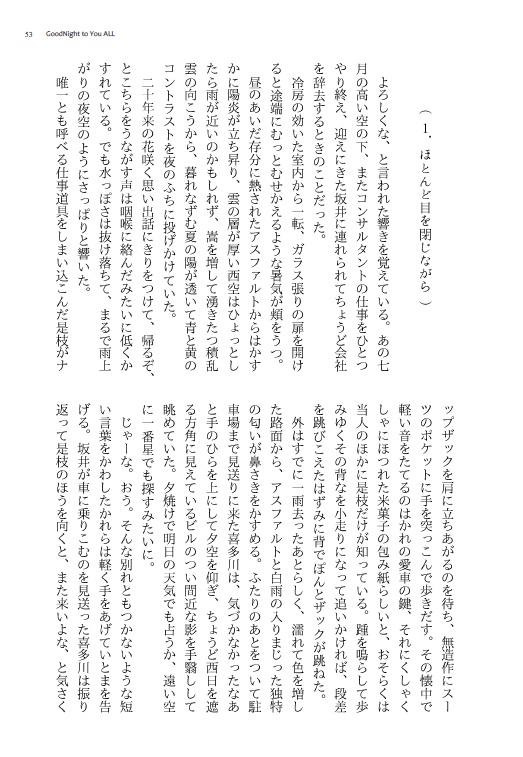 53 GoodNight to You ALL
(1. ほとんど目を閉じながら)
よろしくな、と言われた響きを覚えている。あの七
月の高い空の下、またコンサルタントの仕事をひとつ
やり終え、迎えにきた坂井に連れられてちょうど会社
を辞去するときのことだった。
冷房の効いた室内から一転、ガラス張りの扉を開け
ると途端にむっとむせかえるような暑気が頬をうつ。
昼のあいだ存分に熱されたアスファルトからはかす
かに陽炎が立ち昇り、雲の層が厚い西空はひょっとし
たら雨が近いのかもしれず、嵩を増して湧きたつ積乱
雲の向こうから、暮れなずむ夏の陽が透いて青と黄の
コントラストを夜のふちに投げかけていた。
二十年来の花咲く思い出話にきりをつけて、帰るぞ、
とこちらをうながす声は咽喉に絡んだみたいに低くか
すれている。でも水っぽさは抜け落ちて、まるで雨上
がりの夜空のようにさっぱりと響いた。
唯一とも呼べる仕事道具をしまい込んだ是枝がナ
ップザックを肩に立ちあがるのを待ち、無造作にスー
ツのポケットに手を突っこんで歩きだす。その懐中で
軽い音をたてるのはかれの愛車の鍵、それにくしゃく
しゃにほつれた米菓子の包み紙らしいと、おそらくは
当人のほかに是枝だけが知っている。踵を鳴らして歩
みゆくその背なを小走りになって追いかければ、段差
を跳びこえたはずみに背でぽんとザックが跳ねた。
外はすでに一雨去ったあとらしく、濡れて色を増し
た路面から、アスファルトと白雨の入りまじった独特
の匂いが鼻さきをかすめる。ふたりのあとをついて駐
車場まで見送りに来た喜多川は、気づかなかったなあ
と手のひらを上にして夕空を仰ぎ、ちょうど西日を遮
る方角に見えているビルのつい間近な影を手翳しして
眺めていた。夕焼けで明日の天気でも占うか、遠い空
に一番星でも探すみたいに。
じゃーな。おう。そんな別れともつかないような短
い言葉をかわしたかれらは軽く手をあげていとまを告
げる。坂井が車に乗りこむのを見送った喜多川は振り
返って是枝のほうを向くと、また来いよな、と気さく